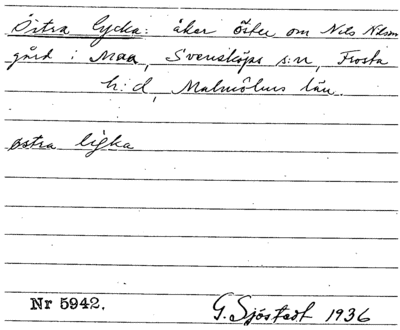 Östra lycka: åker öster om Nils Nilsson
gård i Maa, Svensköps s:n, Frosta
h:d, Malmöhus län.
ostra lyka
Nr 5942.
G. Sjöstedt 1936